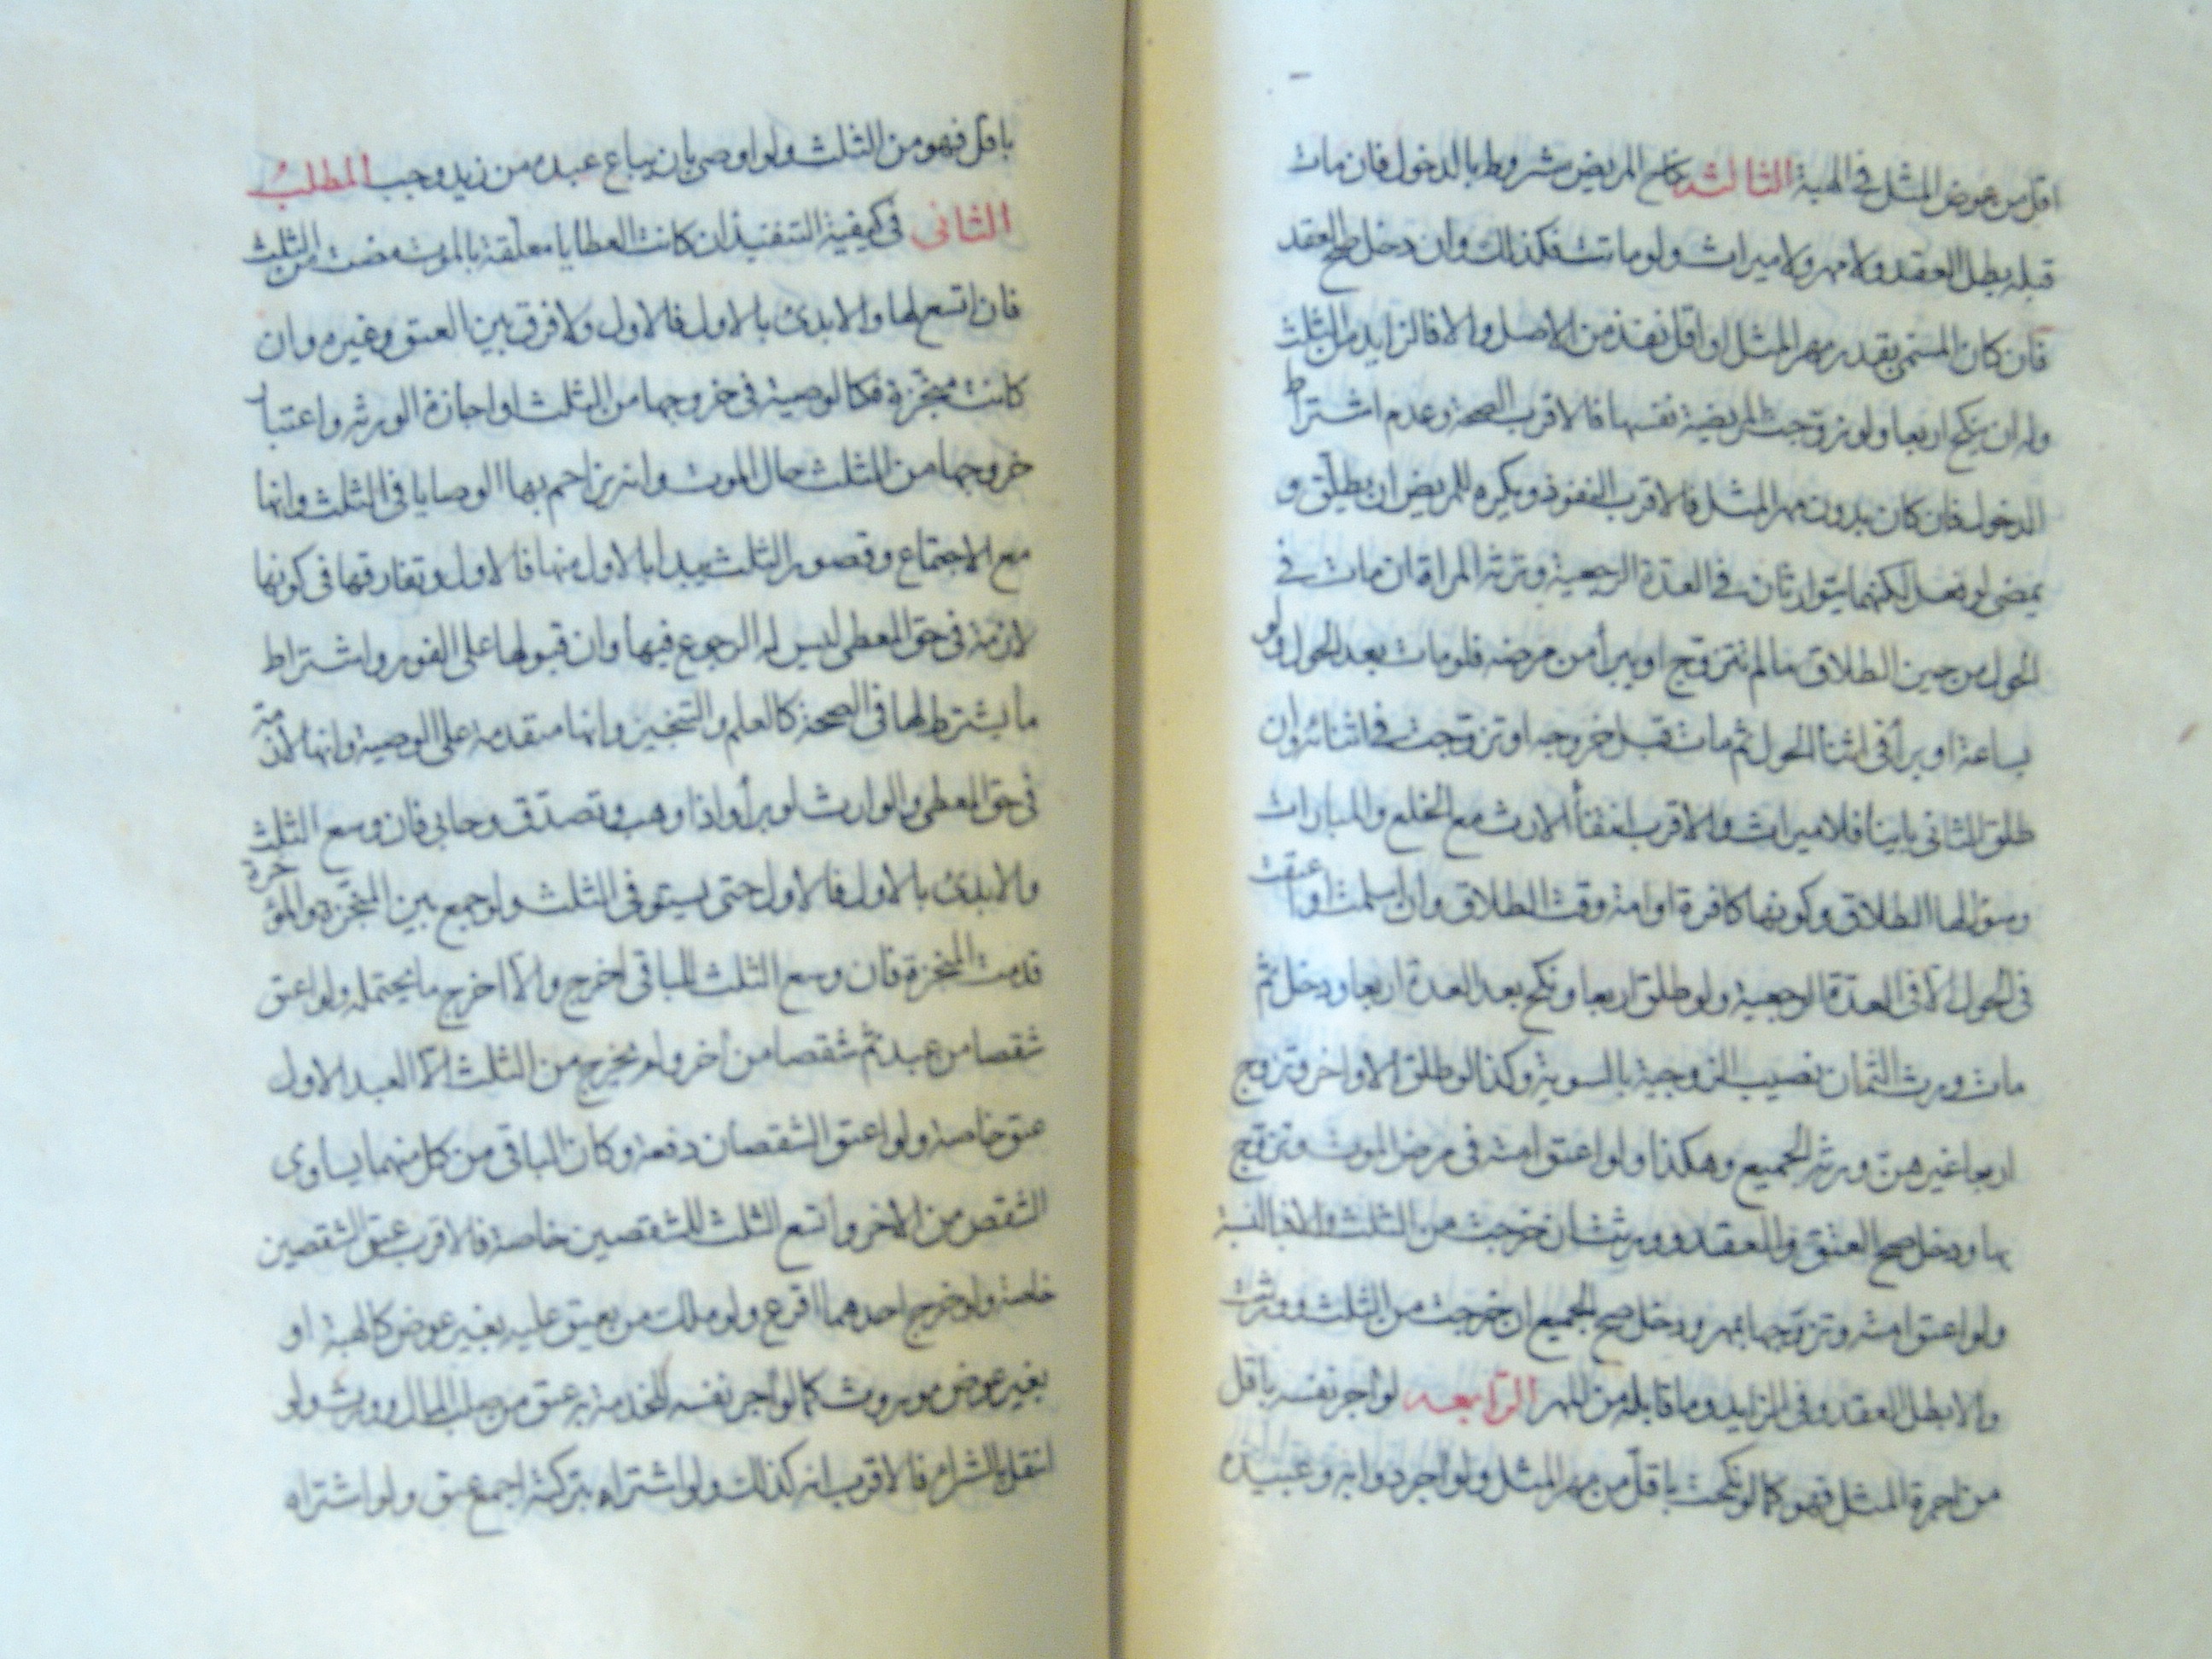 اقل من عوض المثل في الهبة الثالثة نكاح المريض مشروط بالدخول فان مات
قبله بطل العقد ولا مهر ولا ميراث ولو ماتت فكذلك وان دخل صح العقد
فان كان المسمى بقدر مهر المثل او اقل نفذ من الاصل والا فالزايد من الثلث
وله ان ينكح اربعا ولو تزوجت المريضة نفسها فالاقرب الصحة وعدم اشتراط
الدخول فان كان بدون مهر المثل فالاقرب النفوذ ويكره للمريض ان يطلق و
يمضى لو فعل لكنهما يتوارثان في العدة الرجعية وترثه المراة ان مات في
الحول من حين الطلاق ما لم تتزوج او يبرأ من مرضه فلو مات بعد الحول ولو
بساعة او برأ فى اثنا الحول ثم مات قبل خروجه او تزوجت في اثنائه وان
طلق الثانى باينا فلا ميراث والاقرب انتفأ الارث مع الخلع والمبارات
وسؤلها الطلاق وكونها كافرة او امة وقت الطلاق وان اسلمت او اعتقت
فى الحول الا فى العدة الرجعية ولو طلق اربعا ونكح بعد العدة اربعا ودخل ثم
مات ورث الثمان نصيب الزوجية بالسوية وكذا لو طلق الاواخر وتزوج
اربعا غيرهن ورثه الجميع وهكذا ولو اعتق امته فى مرض الموت وتزوج
بها ودخل صح العتق والعقد وورثت ان خرجت من الثلث والا فبالنسبة
ولو اعتق امته وتزوجها بمهر ودخل صح الجميع ان خرجت من الثلث وورثت
والا بطل العقد وفى الزايد وما قابله من المهر الرابعه لو آجر نفسه باقل
من اجرة المثل فهو كما لو نكحت باقل من مهر المثل ولو آجر دوابه وعبيده
باقل فهو من الثلث ولو اوصى بان يباع عبده من زيد وجب المطلب
الثانى فى كيفية التنفيذ ان كانت العطايا معلقة بالموت مضت من الثلث
فان اتسع لها والا بدئ بالاول فالاول ولا فرق بين العتق وغيره وان
كانت منجزة فكالوصية فى خروجها من الثلث او اجازة الورثه واعتبار
خروجها من الثلث حال الموت وانه يزاحم بها الوصايا فى الثلث وانها
مع الاجتماع وقصور الثلث يبدأ بالاول منها فالاول وتفارقها فى كونها
لازمة فى حق المعطى ليس له الرجوع فيها وان قبولها على الفور واشتراط
ما يشترط لها فى الصحة كالعلم والتنجيز وانها متقدمة على الوصية وانها لازمة
فى حق المعطى والوارث لو برأ واذا وهب وتصدق وحابى فان وسع الثلث
والا بدئ بالاول فالاول حتى يستوفى الثلث ولو جمع بين المنجزة والمؤخرة
قدمت المنجزة فان وسع الثلث الباقى اخرج والا اخرج ما يحتمله ولو اعتق
شقصا من عبد ثم شقصا من آخر ولم يخرج من الثلث الا العبد الاول
عتق خاصة ولو اعتق الشقصان دفعة وكان الباقى من كل منهما يساوى
الشقص من الاخر واتسع الثلث للشقصين خاصة فالاقرب عتق الشقصين
خاصة ولو خرج احدهما اقرع ولو ملك من يعتق عليه بغير عوض كالهبة او
بغير عوض موروث كما لو آجر نفسه للخدمة به عتق من صلب المال وورث ولو
انتقل بالشراء فالاقرب انه كذلك ولو اشتراه بتركته اجمع عتق ولو اشتراه